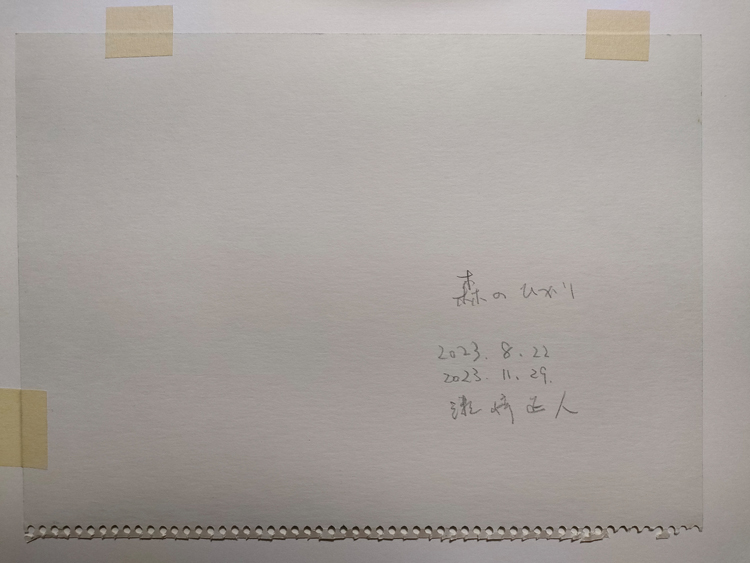 森のひかり
2023. 8. 22
2023. 11. 29.
瀬崎正人